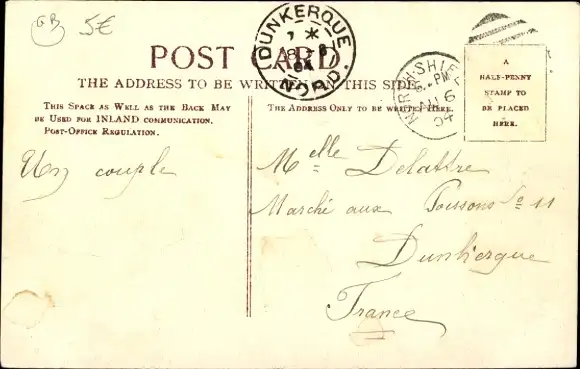 GB 5€
DUNKERQUE
NORD
POST CARD
THE ADDRESS TO BE WRITTEN ON THIS SIDE.
THIS SPACE AS WELL AS THE BACK MAY
BE USED FOR INLAND COMMUNICATION.
POST-OFFICE REGULATION.
THE ADDRESS ONLY TO BE WRITTEN HERE.
A
HALF-PENNY
STAMP TO
BE PLACED
HERE.
PM
6
04
Un couple
Melle Delattre
Marché aux Poissons 11
Dunkerque
France